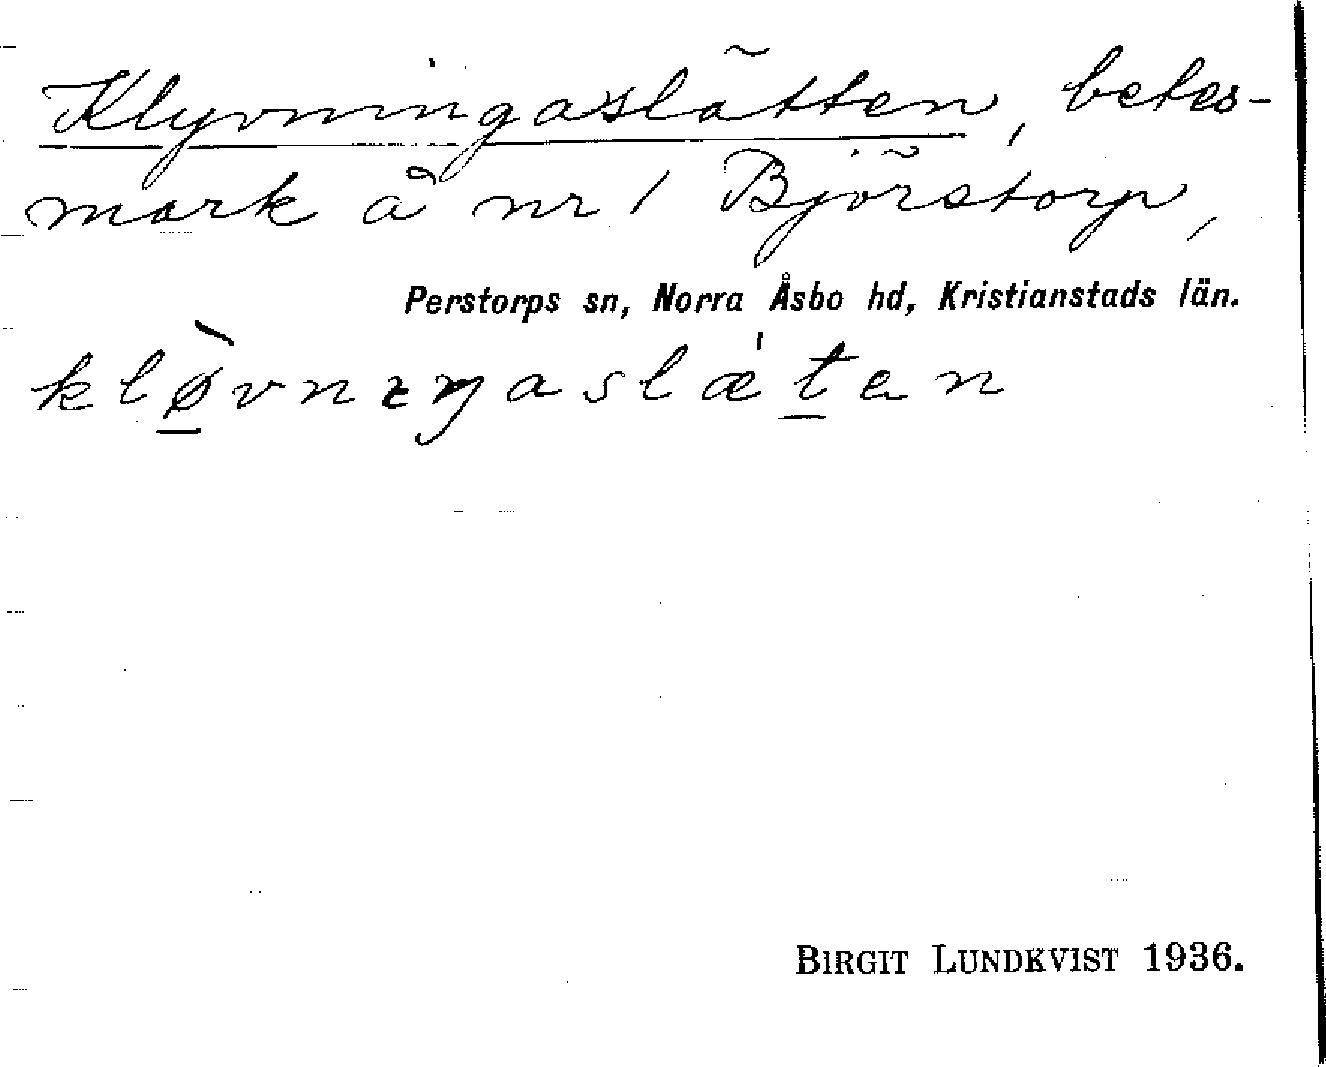 Klyvningaslätten, betes-
mark å nr 1 Björstorp,
Perstorps sn, Norra Åsbo hd, Kristianstads län.
klø̠̀vnɪŋaslæ't̠en
BIRGIT LUNDKVIST 1936.